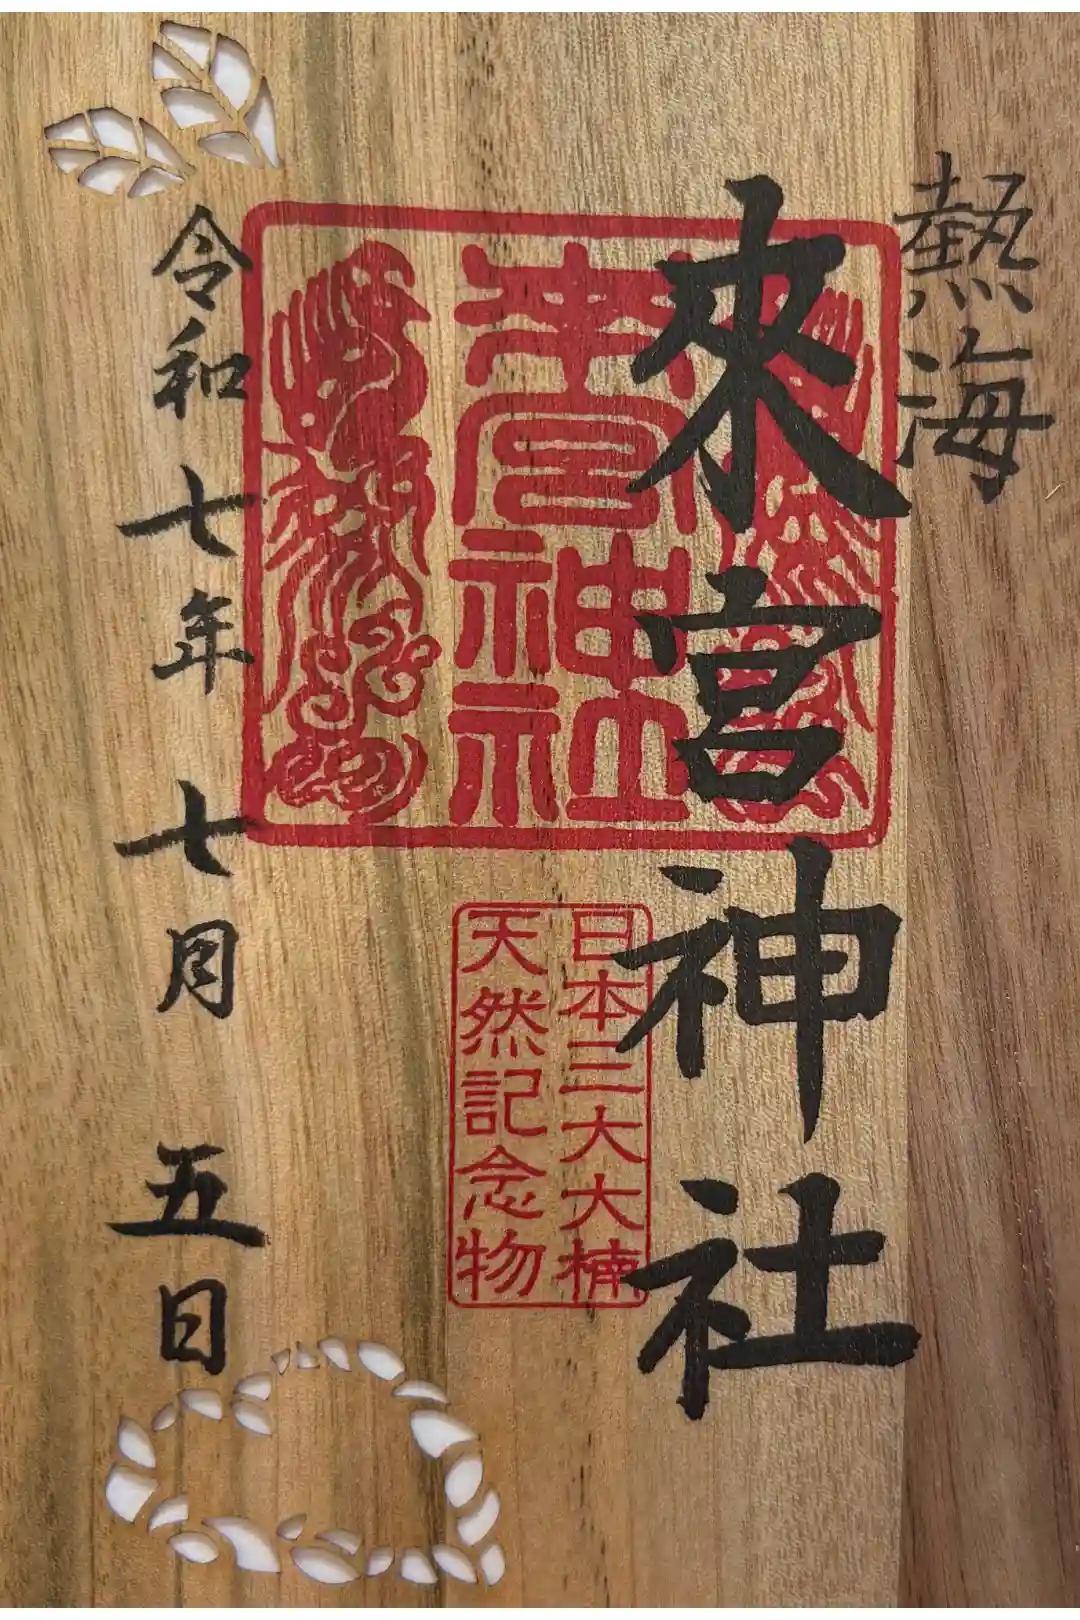 熱海
來宮神社
來宮
神社
日本三大大楠
天然記念物
令和七年七月五日